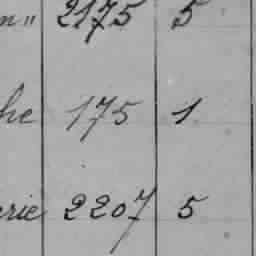 n " 2175 5
he 175 1
erie 2207 5